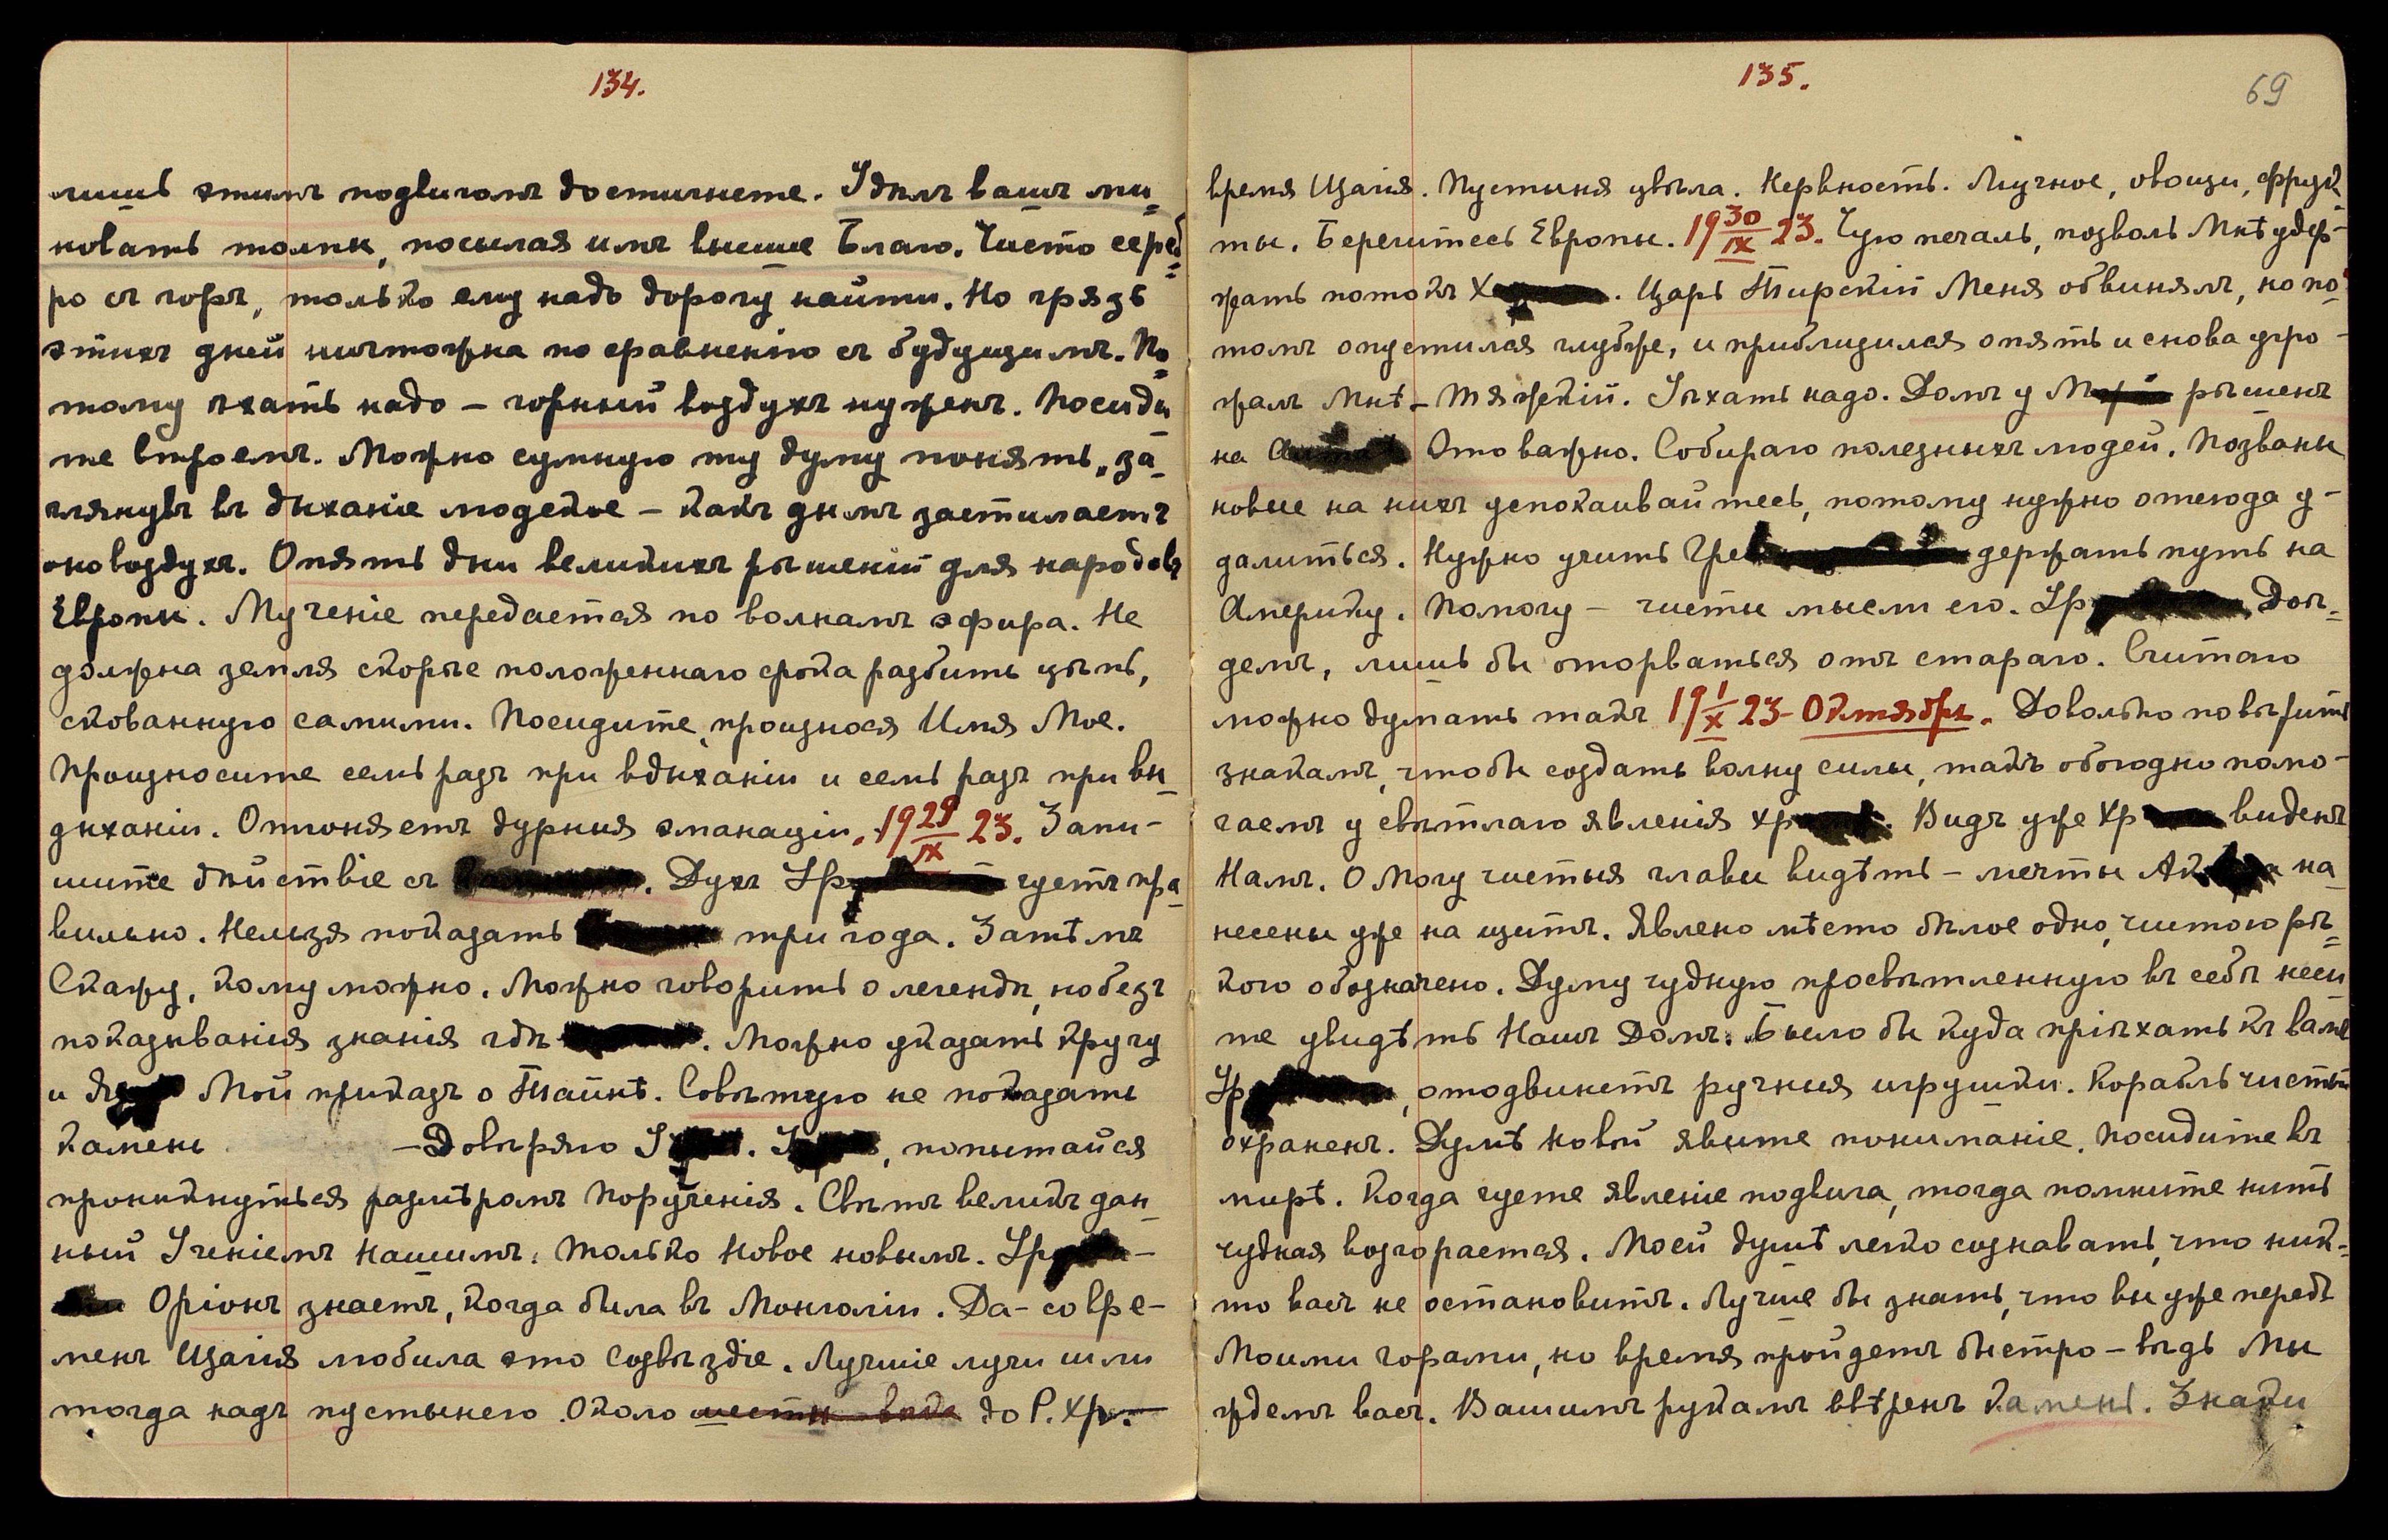 134.
лишь этимъ подвигомъ достигнете. Удѣлъ вашъ ми-
новать толпы, посылая имъ высшее Благо. Чисто сереб-
ро съ горъ, только ему надо дорогу найти. Но грязь
этихъ дней ничтожна по сравненію съ будущимъ. По-
тому ѣхать надо – горный воздухъ нуженъ. Посиди-
те втроемъ. Можно сумную ту думу понять, за-
глянувъ въ дыханіе людское – какъ дымъ застилаетъ
оно воздухъ. Опять дни великихъ рѣшеній для народовъ
Европы. Мученіе передается по волнамъ эфира. Не
должна земля скорѣе положеннаго срока разбить цѣпь,
скованную самими. Посидите, произнося Имя Мое.
Произносите семь разъ при вдыханіи и семь разъ при вы-
дыханіи. Отгоняетъ дурныя эманаціи. 19 29/IX 23. Запи-
шите дѣйствіе съ . Духъ Ур чуетъ пра-
вильно. Нельзя показать три года. Затѣмъ
Скажу, кому можно. Можно говорить о легендѣ, но безъ
показыванія знанія гдѣ . Можно указать Кругу
и Мой приказъ о Тайнѣ. Совѣтую не показать
Камень – Довѣряю , попытайся
проникнуться размѣромъ Порученія. Свѣтъ великъ дан-
ный Ученіемъ Нашимъ: только Новое новымъ. Ур
Оріонъ знаетъ, когда была въ Монголіи. Да – со вре-
менъ Щагія любила это Созвѣздіе. Лучшіе лучи шли
тогда надъ пустынею. Около до Р. Хр.
135.
69
время Щагія. Пустыня увѣла. Нервность. Мучное, овощи, фрук-
ты. Берегитесь Европы. 19 30/IX 23. Чую печаль, позволь Мнѣ удер-
жать потокъ Х . Царь Тирскій Меня обвинялъ, но по-
томъ опустился глубже, и приблизился опять и снова угро-
жалъ Мнѣ – тяжкій. Уѣхать надо. Домъ у М рѣшенъ
на Это важно. Собираю полезныхъ людей. Позваны
новые на нихъ успокаивайтесь, потому нужно отсюда у-
далиться. Нужно учить Гре держать путь на
Америку. Помогу – чисты мысли его. Ур Дой-
демъ, лишь бы оторваться отъ стараго. Считаю
можно думать такъ 19 1/X 23 – Октябрь. Довольно повѣрить
знакамъ, чтобы создать волну силы, такъ обоюдно помо-
гаемъ у свѣтлаго явленія хр . Видъ уже Хр виденъ
Намъ. О Могу чистыя главы видѣть – мечты на-
несены уже на щитъ. Явлено мѣсто бѣлое одно, чистою рѣ-
кою обозначено. Думу чудную просвѣтленную въ себѣ неси-
те увидѣть Нашъ Домъ. Было бы куда пріѣхать къ вамъ
Ур , отодвинетъ ручныя игрушки. Корабль чистый
охраненъ. Думѣ новой явите пониманіе. Посидите въ
мирѣ. Когда чуете явленіе подвига, тогда помните нить
чудная возгорается. Моей душѣ легко сознавать, что ник-
то васъ не остановитъ. Лучше бы знать, что вы уже передъ
Моими горами, но время пройдетъ быстро – вѣдь Мы
ждемъ васъ. Вашимъ рукамъ ввѣренъ Камень. Знаки